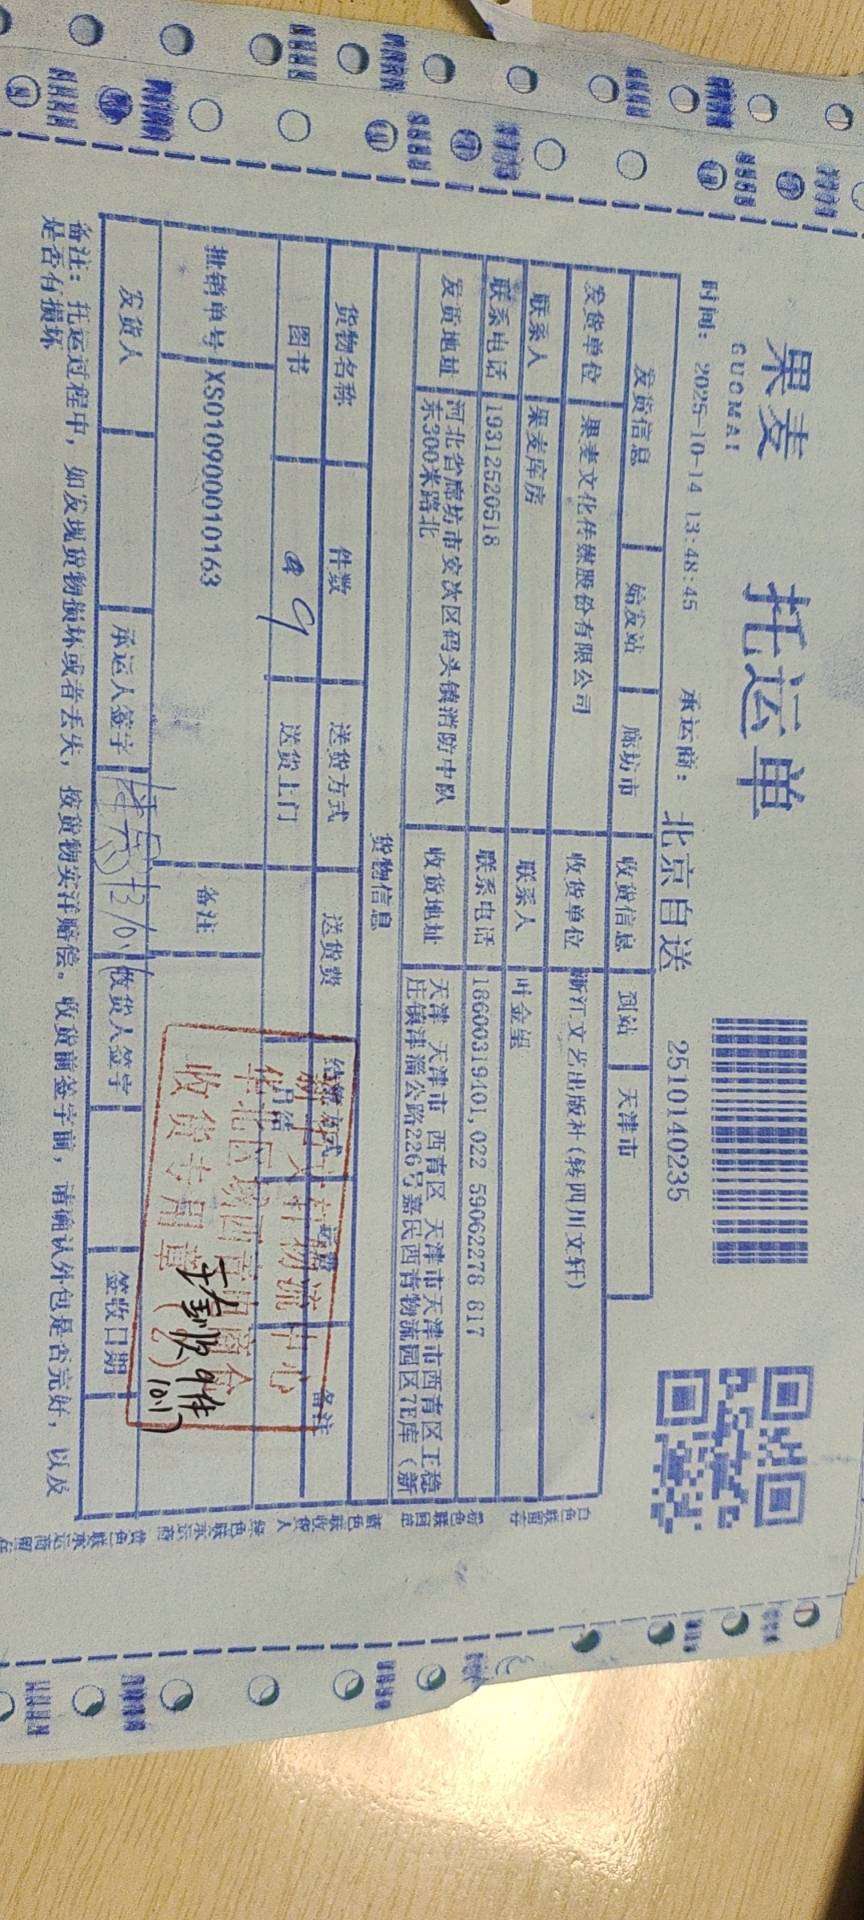 果麦
GUOMAI
托运单
时间: 2025-10-14 13:48:45
承运商: 北京自送
2510140235
发货信息 始发站 廊坊市 收货信息 到站 天津市
发货单位 果麦文化传媒股份有限公司 收货单位 浙江文艺出版社(转四川文轩)
联系人 果麦库房 联系人
联系电话 19312520518 联系电话 18600319401,022 59062278 817
发货地址 河北省廊坊市安次区码头镇消防中队
东300米路北
收货地址 天津 天津市 西青区 天津市天津市西青区王稳
庄镇津淄公路226号嘉民西青物流园区7E库(新
货物信息
货物名称 件数 送货方式 送货费 结算方式 备注
图书 9 送货上门 月结
批销单号 XS0109000010163 备注
发货人 承运人签字 收货人签字 签收日期
备注: 托运过程中, 如发现货物损坏或者丢失, 按货物实洋赔偿。收货前签字前, 请确认外包是否完好, 以及
是否有损坏
物流中心
华北区域
收货专用章
(2)
白色联留存 粉色联回总 蓝色联收货人 绿色联承运商 黄色联承运商留存